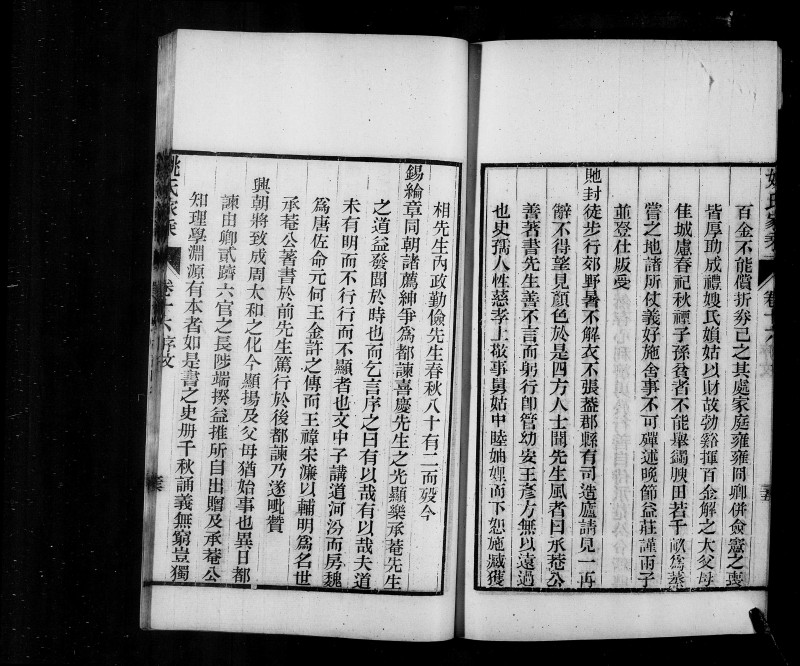 百金不能償折券已之其處家庭雍雍同卿併僉憲之喪
皆厚助成禮嫂氏嬪姑以財故勃谿揮百金解之大父母
佳城慮春祀秋禋子孫貧者不能舉蠲腴田若干畝為蒸
嘗之地諸所仗義好施舍事不可殫述晚節益莊謹兩子
並登仕版受
貤封徒步行郊野暑不解衣不張葢郡縣有司造廬請見一再
辭不得望見顏色於是四方人士聞先生風者曰承菴公
善著書先生善不言而躬行卽管幼安王彥方無以遠過
也史孺人性慈孝上敬事舅姑中睦妯娌而下恕施臧獲
相先生內政勤儉先生春秋八十有二而歿今
錫綸章同朝諸薦紳爭為都諫喜慶先生之光顯樂承菴先生
之道益發聞於時也而乞言序之曰有以哉有以哉夫道
未有明而不行行而不顯者也文中子講道河汾而房魏
為唐佐命元何王金許之傳而王禕宋濂以輔明為名世
承菴公著書於前先生篤行於後都諫乃遂毗贊
興朝將致成周太和之化今顯揚及父母猶始事也異日都
諫由卿貳躋六官之長陟端揆益推所自出贈及承菴公
知理學淵源有本者如是書之史册千秋誦義無窮豈獨
姚氏家乘
卷十六 序文